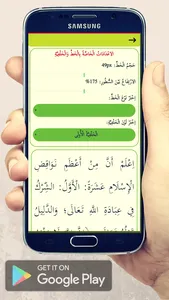 SAMSUNG
الإعدادات الخاصة بالخط والخلفية
حجم الخط: 49px
الارتفاع بين السطور: 175%
اختر نوع الخط:
اختر لون الخلفية:
الخلفية الأولى
اِعْلَمْ أَنَّ مِنْ أَعْظَمِ نَوَاقِضِ
الْإِسْلَامِ عَشَرَةً: الْأَوَّلُ: الشِّرْكُ
فِي عِبَادَةِ اللَّهِ تَعَالَى؛ وَالدَّلِيلُ
GET IT ON
Google Play